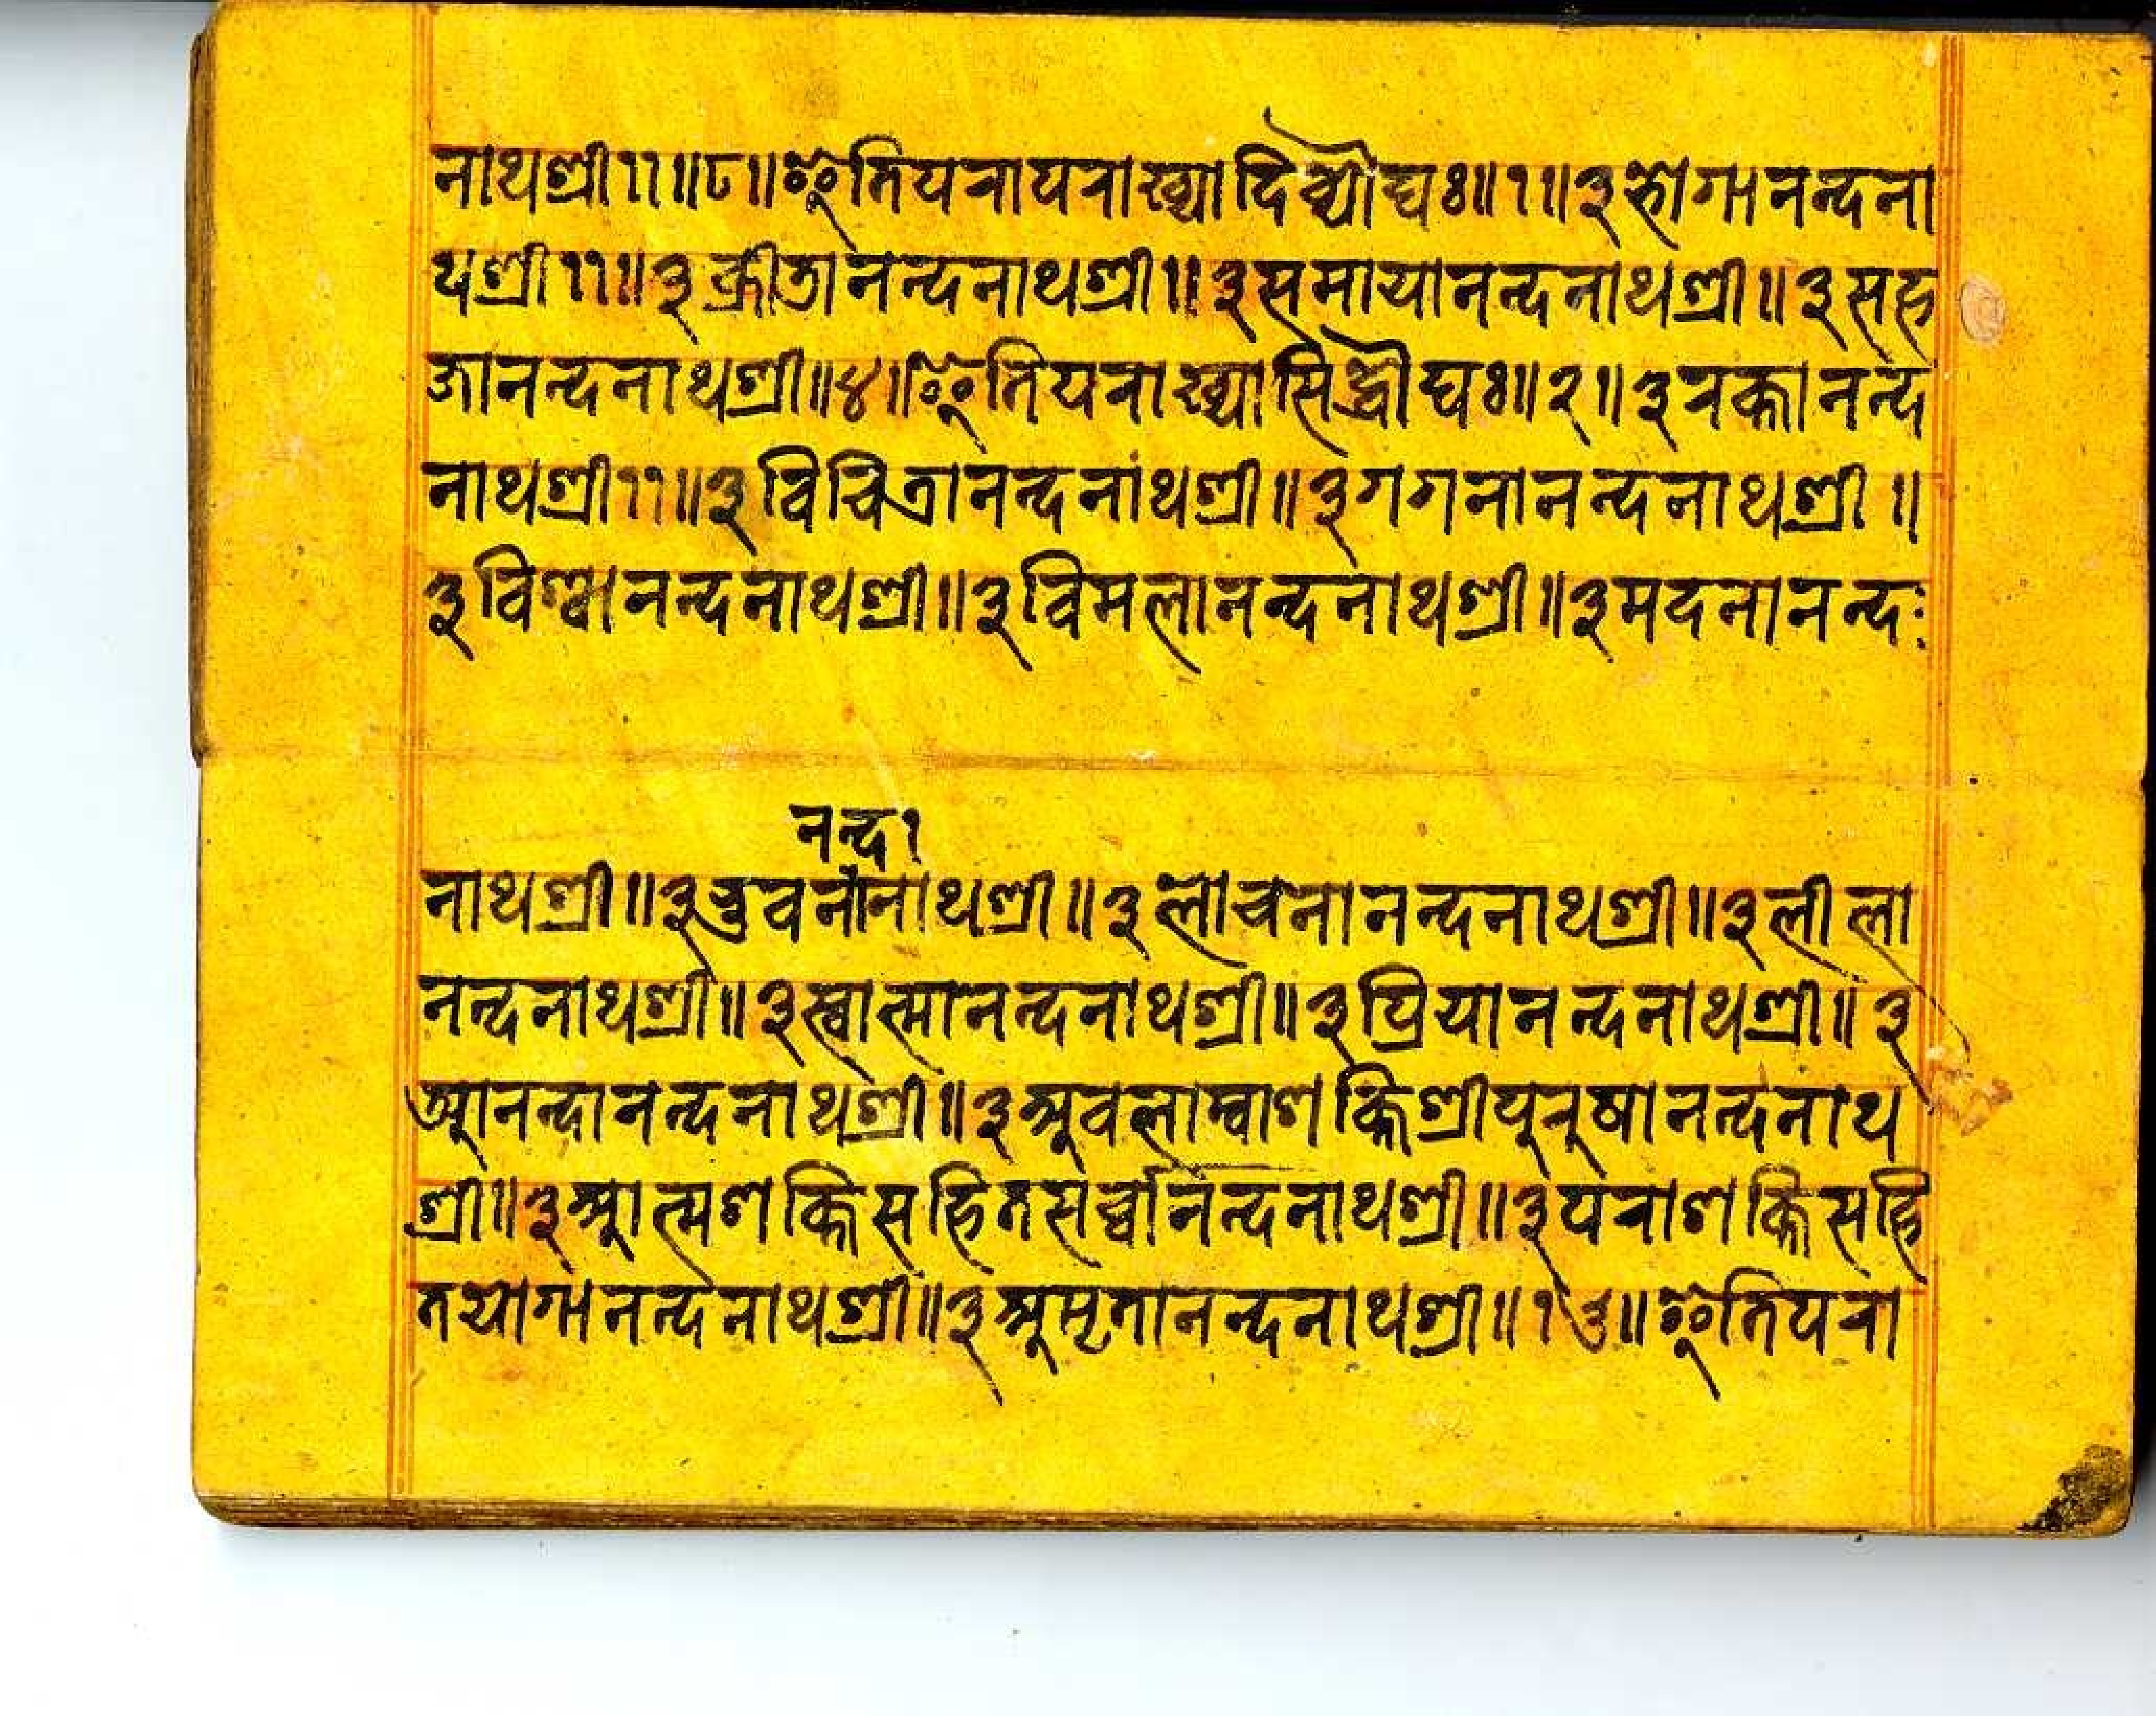 नाथश्री११॥८॥इतिपरापराख्यादिव्यौघः॥१॥३भोगानन्दना
थश्री११॥३क्रीतानन्दनाथश्री॥३समायानन्दनाथश्री॥३सह
जानन्दनाथश्री॥४॥इतिपराख्यासिद्धौघः॥२॥३रक्तानन्द
नाथश्री११॥३विचित्रानन्दनाथश्री॥३गगनानन्दनाथश्री॥
३विश्वानन्दनाथश्री॥३विमलानन्दनाथश्री॥३मदनानन्दः
नन्द१
नाथश्री॥३भुवनानाथश्री॥३लोचनानन्दनाथश्री॥३लीला
नन्दनाथश्री॥३स्वात्मानन्दनाथश्री॥३प्रियानन्दनाथश्री॥३
आनन्दानन्दनाथश्री॥३अवलाम्बाशक्तिश्रीपुरुषानन्दनाथ
श्री॥३आत्मशक्तिसहितसर्व्वानन्दनाथश्री॥३पराशक्तिसहि
तयोगानन्दनाथश्री॥३अमृतानन्दनाथश्री॥१३॥इतिपरा